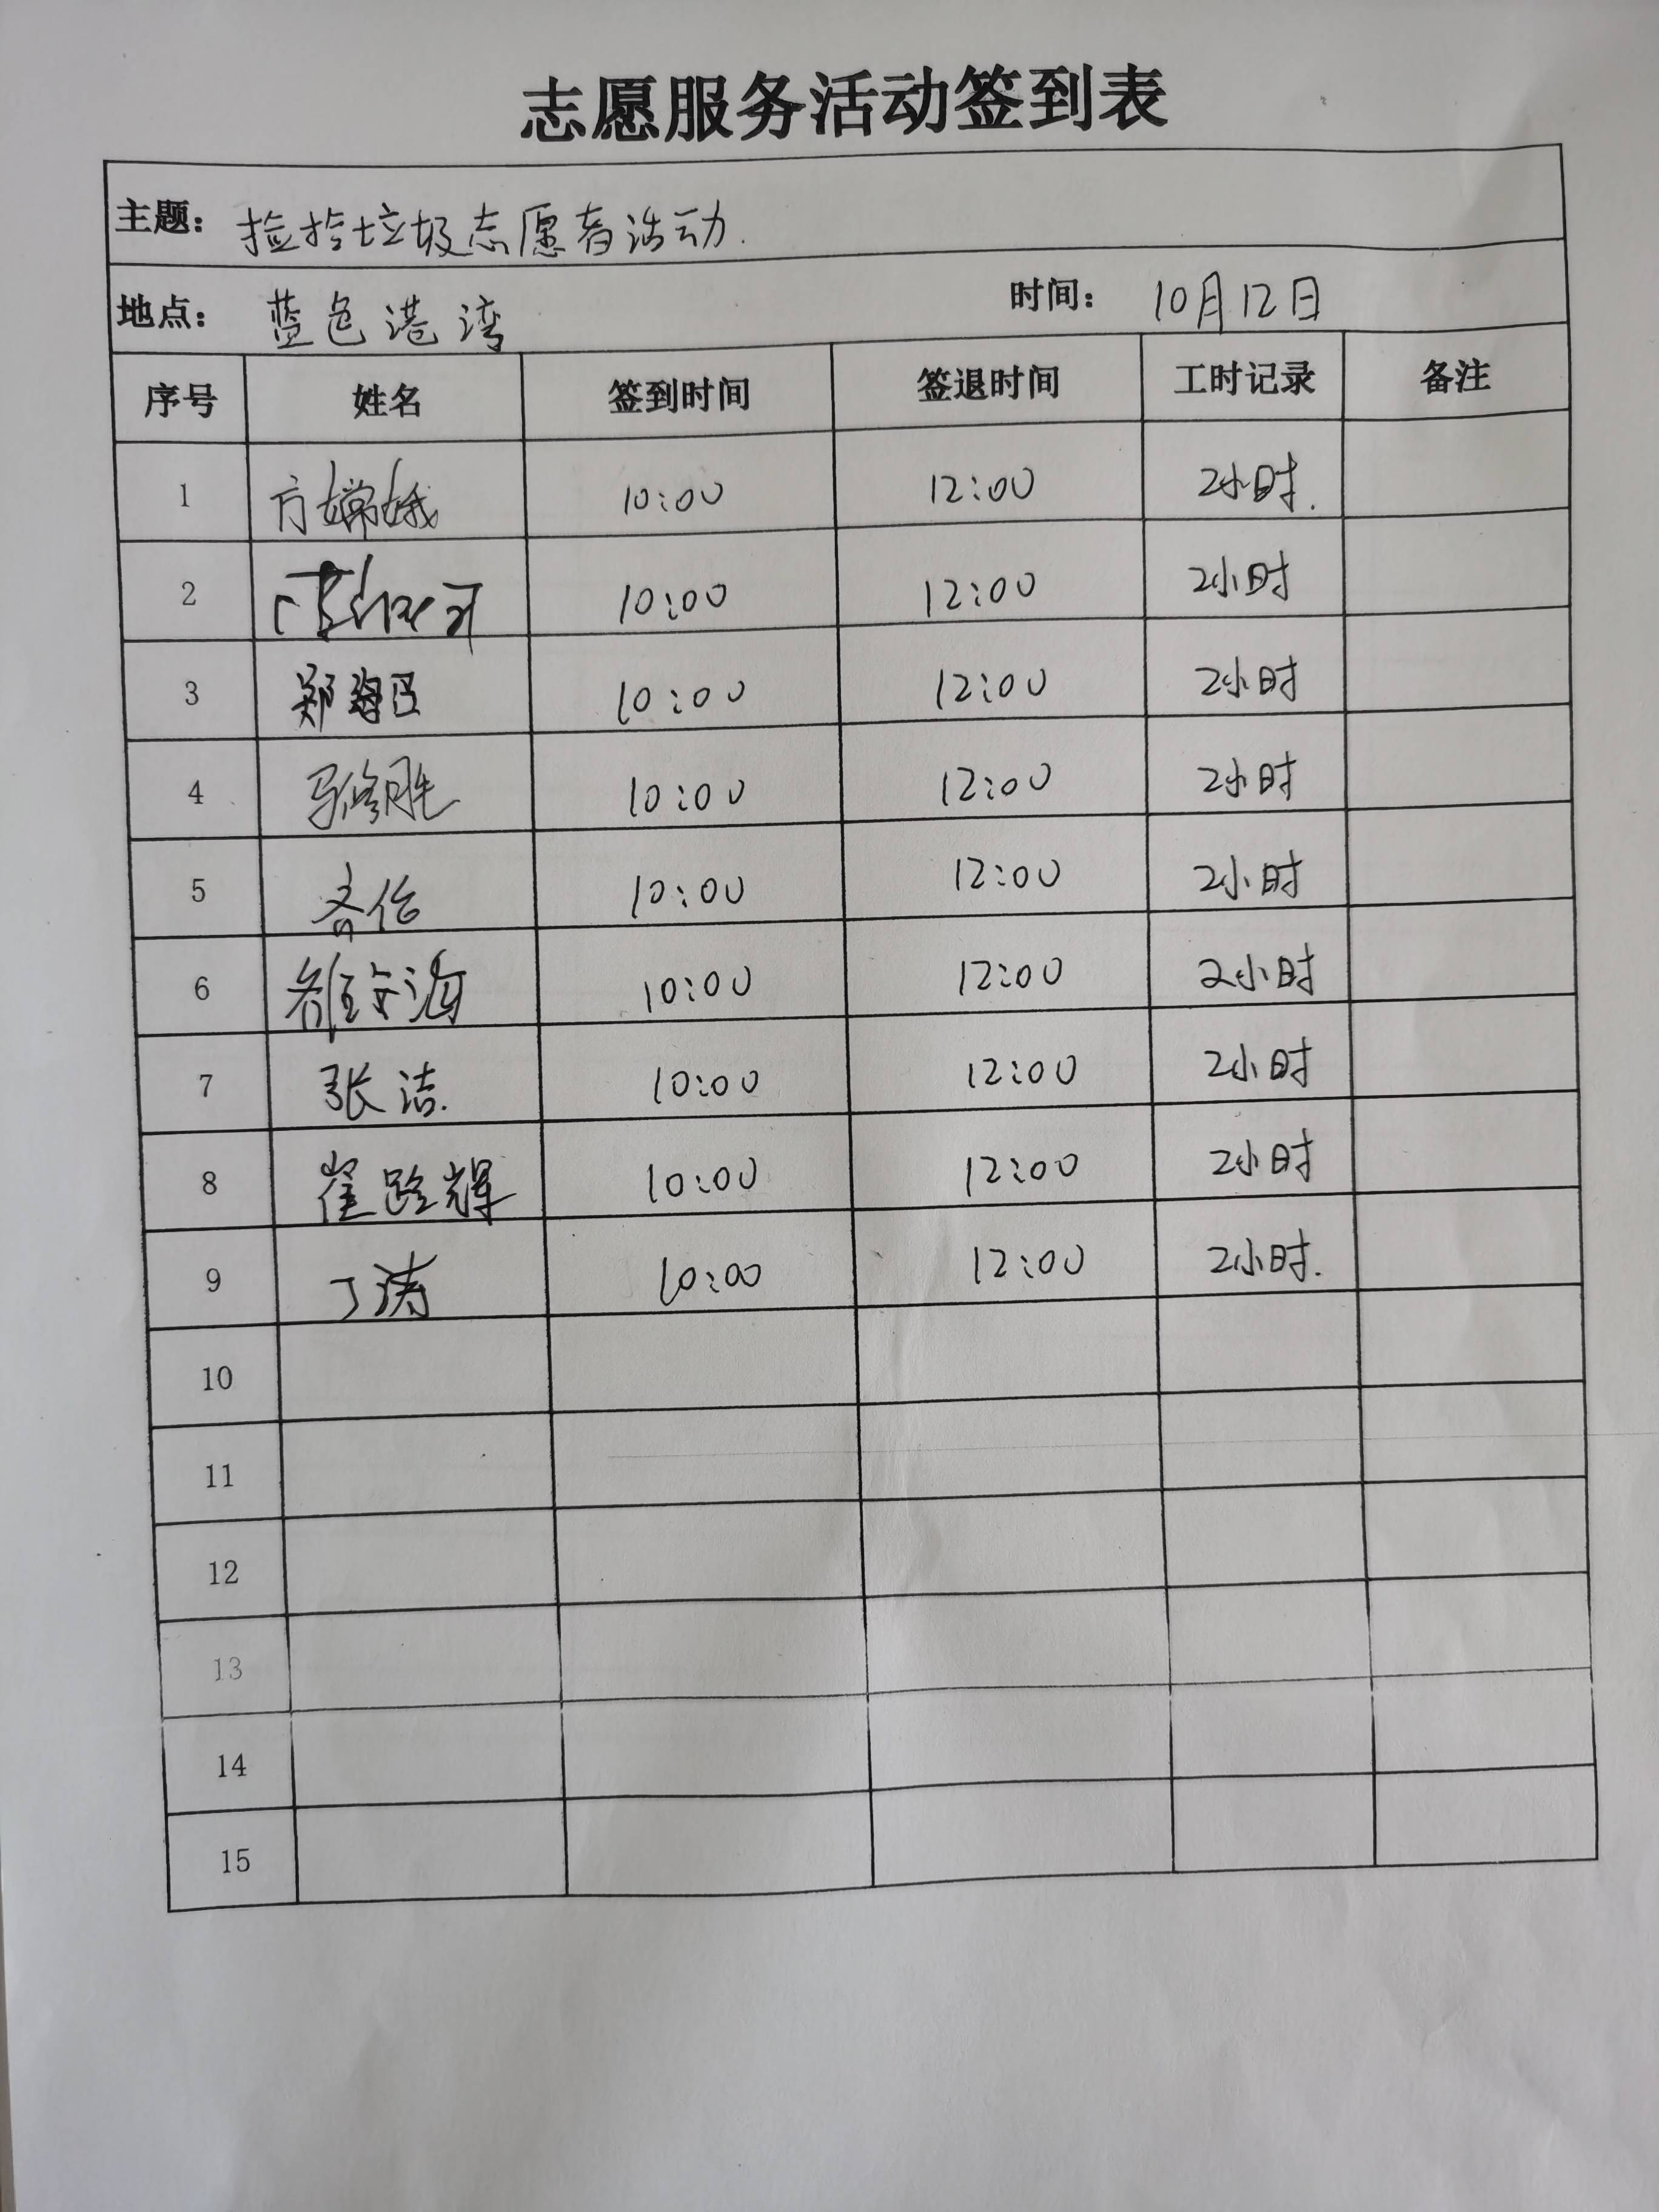 志愿服务活动签到表
主题： 捡拾垃圾志愿者活动.
地点： 蓝色港湾 时间： 10月12日
序号 姓名 签到时间 签退时间 工时记录 备注
1 方嫦娥 10:00 12:00 2小时.
2 10:00 12:00 2小时
3 郑海 10:00 12:00 2小时
4 马修胜 10:00 12:00 2小时
5 10:00 12:00 2小时
6 10:00 12:00 2小时
7 张洁. 10:00 12:00 2小时
8 崔路辉 10:00 12:00 2小时
9 丁涛 10:00 12:00 2小时.
10
11
12
13
14
15